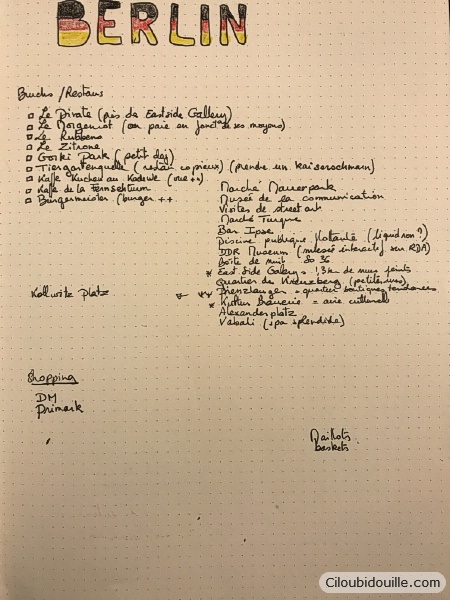 BERLIN
Brunchs / Restaus
Le Pirate (près de Eastside Gallery)
Le Morgenrot (on paie en fonct° de ses moyens)
Le Rubbens
Le Zitrone
Gorki Park (petit dej)
Tiergartenquelle (urbain copieux) (prendre un kaiserschmarn)
Kaffe Kuchen au Kadewe (vue ++)
Kaffe de la Fernsehturm
Burgermeister (burger ++)
Marché Mauerpark
Musée de la communication
Visites de street art
Marché Turque
Bar Ipse
Piscine publique flottante (liquidrom ?)
DDR Museum (musée interactif sur RDA)
Boîte de nuit So 36
* East Side Galery = 1,3 km de murs peints
Quartier de Kreuzberg (petites rues)
Kollwitz Platz
= quartier boutiques tendances
* Kultur brauerei = aire culturelle
Alexanderplatz
Vabali (spa splendide)
Shopping
DM
Primark
Maillots
baskets
Ciloubidouille.com